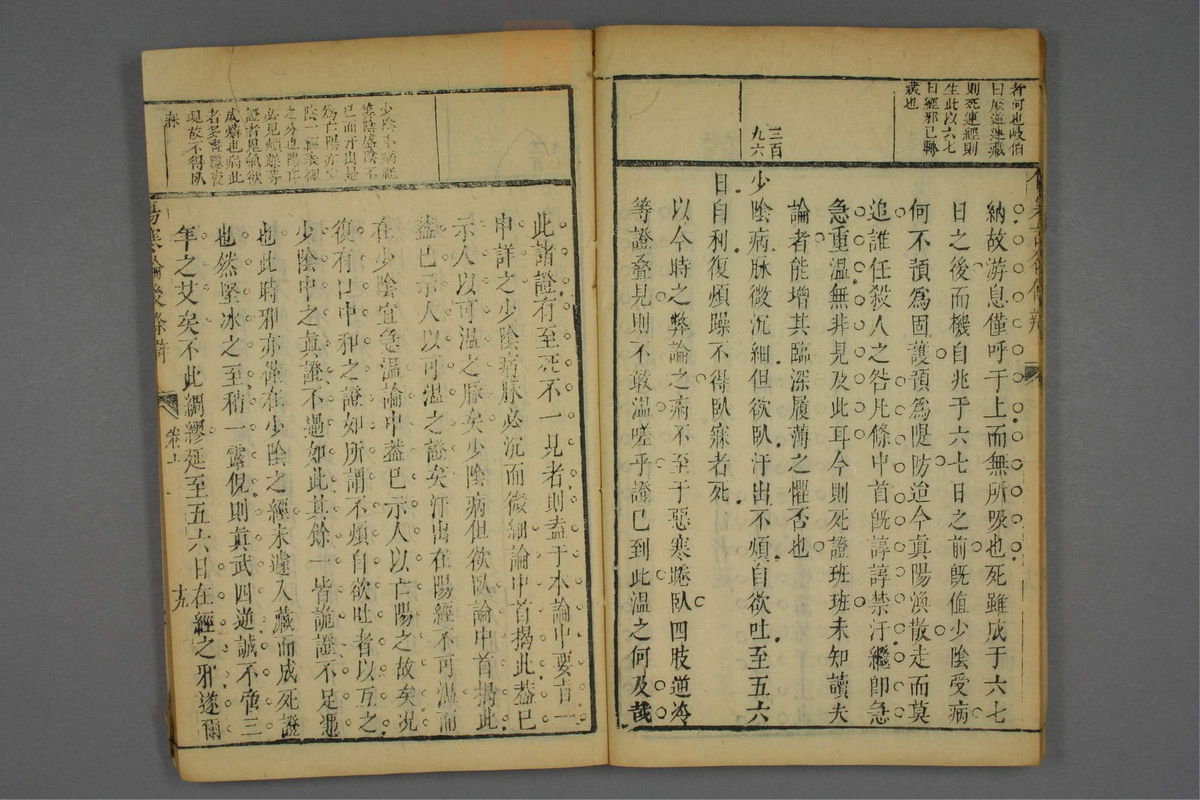 者何也岐伯
曰厥逆連藏
則死連經則
生此以六七
日經邪已轉
藏也
三百
九六
納故游息僅呼于上而無所吸也死雖成于六七
日之後而機自兆于六七日之前旣值少陰受病
何不預爲固護預爲隄防迨今真陽渙散走而莫
追誰任殺人之咎凡條中首旣諄諄禁汗繼卽急
急重溫無非見及此耳今則死證班班未知讀夫
論者能增其臨深履薄之懼否也
少陰病脉微沉細但欲臥汗出不煩自欲吐至五六
日自利復煩躁不得臥寐者死
以今時之弊論之病不至于惡寒踡臥四肢逆冷
等證叠見則不敢溫嗟乎證已到此溫之何及哉
少陰本病經
等陰盛陰不
已而汗出是
爲亡陽亦
陰一經表裡
之分也陽
必見煩躁
證者鬼氣欲
成燐也病此
者多晝隱夜
現故不得臥
寐
此諸證有至死不一見者則盍于本論中要旨一
申詳之少陰病脉必沉而微細論中首揭此葢已
示人以可溫之脉矣少陰病但欲臥論中首揭此
葢已示人以可溫之證矣汗出在陽經不可溫而
在少陰宜急溫論中葢已示人以亡陽之故矣况
復有口中和之證如所謂不煩自欲吐者以互之
少陰中之真證不過如此其餘一皆詭證不足憑
也此時邪亦僅在少陰之經未遽入藏而成死證
也然堅冰之至稍一露倪則真武四逆誠不啻三
年之艾矣不此綢繆延至五六日在經之邪遂爾
傷寒論後條辨
卷十
十九